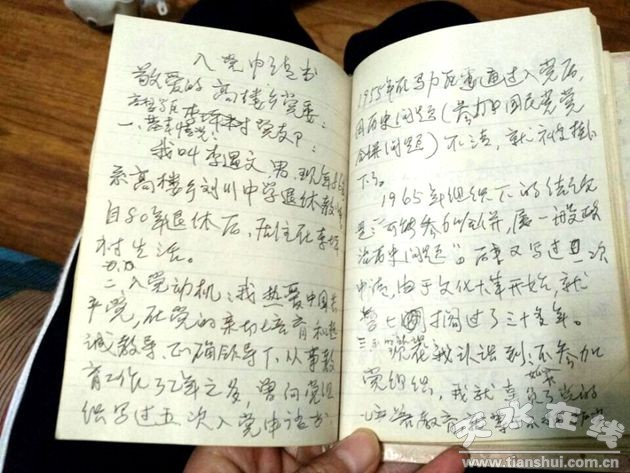 入党申请书
敬爱的高楼乡党委:
李坪村党支部:
一、基本情况:
我叫李遇文,男,现年86
系高楼乡刘川中学退休教师
自80年退休后,居住在李坪
村生活。
二、入党动机:我热爱中国共
产党,在党的亲切培育和热
诚教导、正确领导下,从事教
育工作了几年之多,曾向党组
织写过五次入党申请书
1955年在马力区通过入党后,
因历史问题(参加国民党党
问题)不清,就被挂
下了。
1965年组织下的结论
是:可按参加,属一般政
治历史问题"。后来又写过一次
申请,由于文化十年开始,就
搁过了三十多年。
现在我认识到:不参加
党组织,我就辜负了党的
培养教育
天水在线
www.tianshui.com.cn